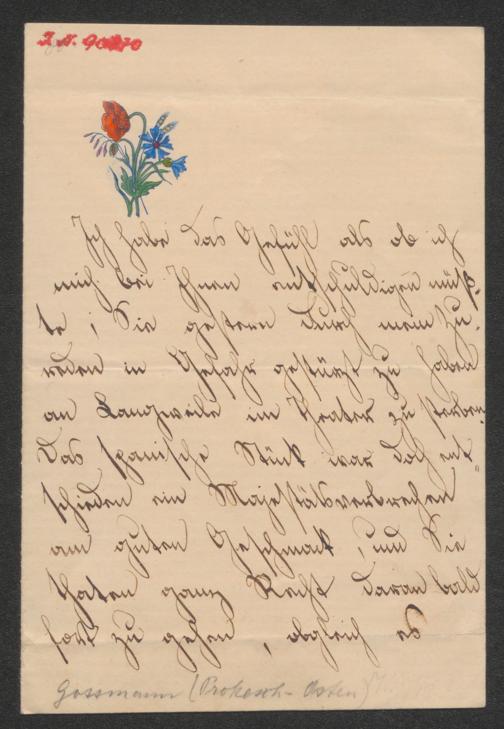 I. N. 90870
Ich habe das Gefühl als ob ich
mich bei Ihnen entschuldigen müß-
te; Sie gestern durch mein Zu-
reden in Gefahr gestürzt zu haben
an Langweile im Theater zu sterben.
Das spanische Stück war doch ent-
schieden ein Majestätsverbrechen
am guten Geschmack, und Sie
thaten ganz Recht daran bald
fort zu gehen, obgleich es
Gossmann (Prokesch-Osten)